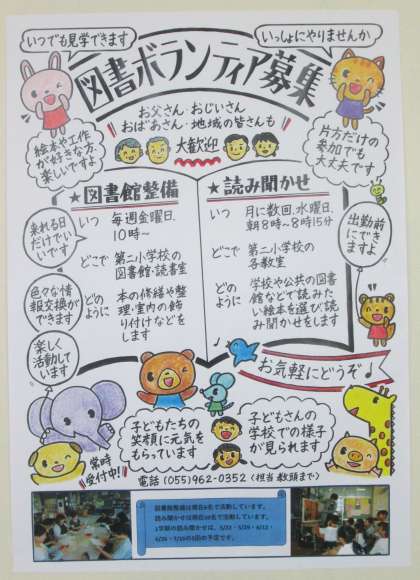 いつでも見学できます
いっしょにやりませんか
図書ボランティア募集
お父さん・おじいさん
おばあさん・地域の皆さんも
大歓迎
絵本や工作
が好きな方、
楽しいですよ
片方だけの
参加でも
大丈夫です
★図書館整備
いつ 毎週金曜日、
10時〜
どこで 第二小学校の
図書館・読書室
どの
ように
本の修繕や整
理・室内の飾
り付けなどを
します
★読み聞かせ
いつ 月に数回、水曜日、
朝8時〜8時15分
どこで 第二小学校の
各教室
どの
ように
学校や公共の図書
館などで読みた
い絵本を選び、読
み聞かせをします
来れる日
だけでい
いです
色々な情
報交換が
できます
楽しく
活動して
います
出勤前
にでき
ますよ
お気軽にどうぞ♪
子どもたちの
笑顔に元気を
もらっています
子どもさんの
学校での様子
が見られます
常時
受付中!
電話 (055)962-0352 (担当 教頭まで)
図書館整備は現在9名で活動しています。
読み聞かせは現在20名で活動しています。